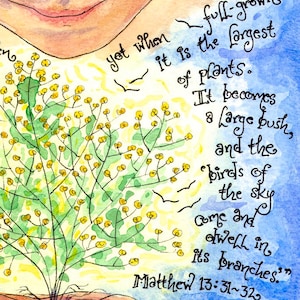 full-grown
yet when it is the largest
of plants.
It becomes
a large bush,
and the
birds of
the sky
come and
dwell in
its branches."
Matthew 13:31-32